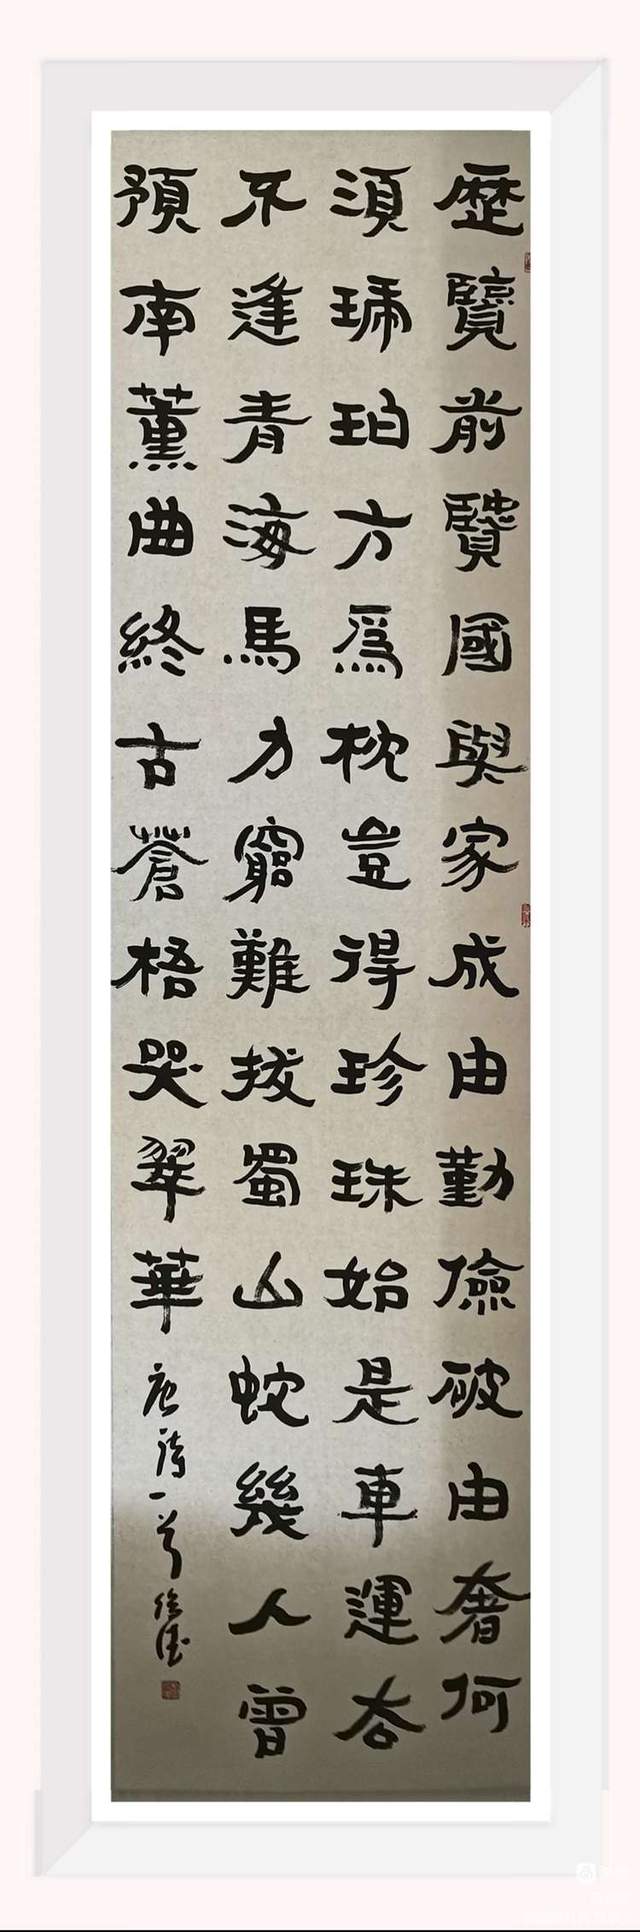 歷覽前賢國與家成由勤儉破由奢何
須琥珀方爲枕豈得珍珠始是車運去
不逢青海馬力窮難拔蜀山蛇幾人曾
預南薰曲終古蒼梧哭翠華唐詩一首